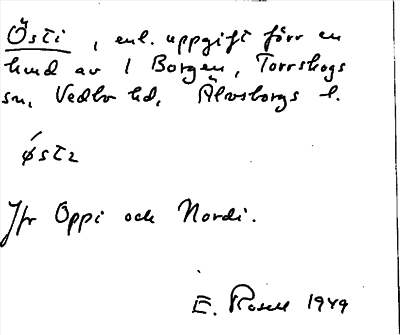 Östi, enl. uppgift förr en
hund av I Borgen, Torrskogs
sn, Vedbo hd, Älvsborgs l.
østɩ
Jfr Oppi och Nordi.
E. Rosell 1949